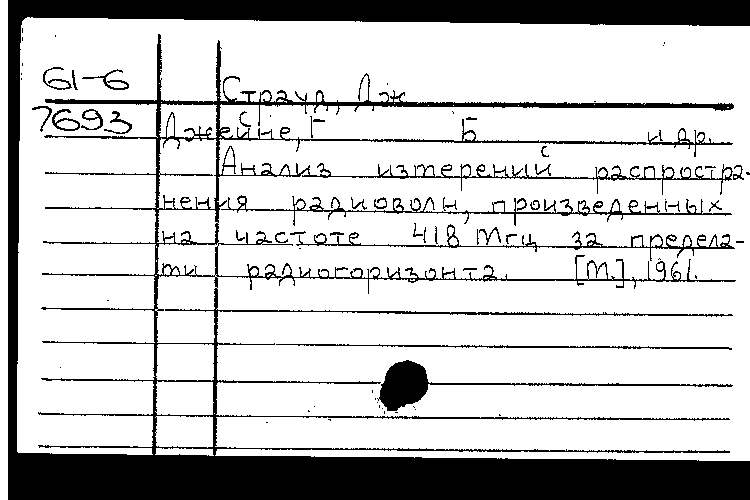 61-6
Страуд, Дж
7693
Джейне, Г Б и др.
Анализ измерений распростра-
нения радиоволн, произведенных
на частоте 418 мгц за предела-
ми радиогоризонта. [М.], 1961.